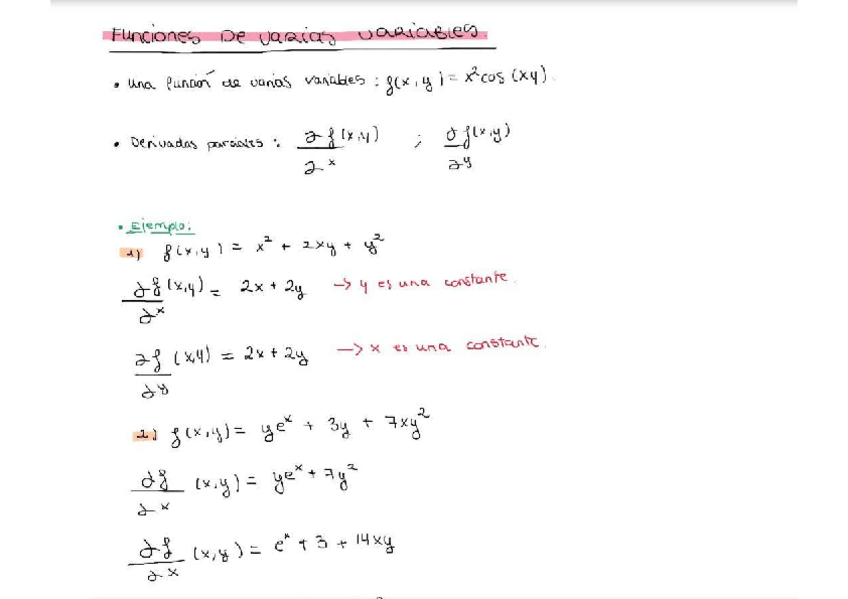 Funciones De varias variables
• Una función de varias variables : f(x,y) = x²cos(xy).
• Derivadas parciales : ∂f(x,y)/∂x ; ∂f(x,y)/∂y
• Ejemplo:
1) f(x,y) = x² + 2xy + y²
∂f/∂x (x,y) = 2x + 2y → y es una constante.
∂f/∂y (x,y) = 2x + 2y → x es una constante.
2) f(x,y) = ye^x + 3y + 7xy²
∂f/∂x (x,y) = ye^x + 7y²
∂f/∂x (x,y) = e^x + 3 + 14xy